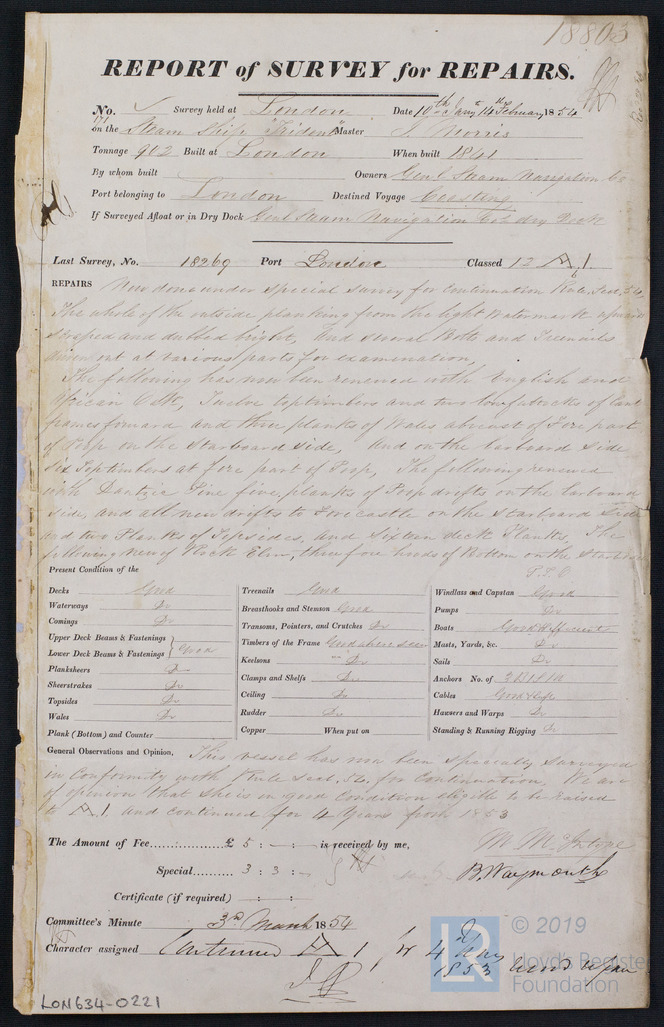 18803
REPORT of SURVEY for REPAIRS.
No. Survey held at London Date 10th Jany & 14th February 1854
on the Steam Ship "Trident" Master J. Norris
Tonnage 902 Built at London When built 1841
By whom built Owners Genl Steam Navigation Co
Port belonging to London Destined Voyage Coasting
If Surveyed Afloat or in Dry Dock Genl Steam Navigation Co's dry Dock
Last Survey, No. 18269 Port London Classed 12 A.1.
REPAIRS Now done under special survey for continuation Rule, Sect, 52,
The whole of the outside planking from the light Watermark upwards
scraped and dubbed bright, and several Bolts and Treenails
driven out at various parts for examination,
The following has now been renewed with English and
African Oak, Twelve toptimbers and two of cant
frames forward and three planks of Wales abreast of Fore part
of Poop on the Starboard side, and on the larboard side
six Toptimbers at fore part of Poop, The following renewed
with Dantzic Pine five planks of Poop drifts on the larboard
side, and all new drifts to Forecastle on the Starboard Side
and two Planks of Topsides, and Sixteen deck Planks, The
following new of Rock Elm, three fore hoods of Bottom on the Starboard
P.T.O
Present Condition of the
Decks Good
Waterways Do
Comings Do
Upper Deck Beams & Fastenings
Lower Deck Beams & Fastenings } Good
Planksheers Do
Sheerstrakes Do
Topsides Do
Wales Do
Plank (Bottom) and Counter
Treenails Good
Breasthooks and Stemson Good
Transoms, Pointers, and Crutches Do
Timbers of the Frame Good where seen
Keelsons " Do
Clamps and Shelfs Do
Ceiling Do
Rudder Do
Copper When put on
Windlass and Capstan Good
Pumps Do
Boats Good & efficient
Masts, Yards, &c. Do
Sails Do
Anchors No. of
Cables Good
Hawsers and Warps Do
Standing & Running Rigging Do
General Observations and Opinion, This vessel has now been specially surveyed
in Conformity with Rule Sect, 52, for Continuation, We are
of opinion that she is in good Condition eligible to be raised
to A.1. and continued for 4 Years from 1853
The Amount of Fee £ 5 : - : - is received by me,
Special 3 : 3 : -
M McIntyre
B. Waymouth
Certificate (if required) : :
Committee's Minute 3rd March 1854
Character assigned Continued A 1 for 4 Years
1853
LON634-0221
LR
© 2019
Lloyd's Register
Foundation